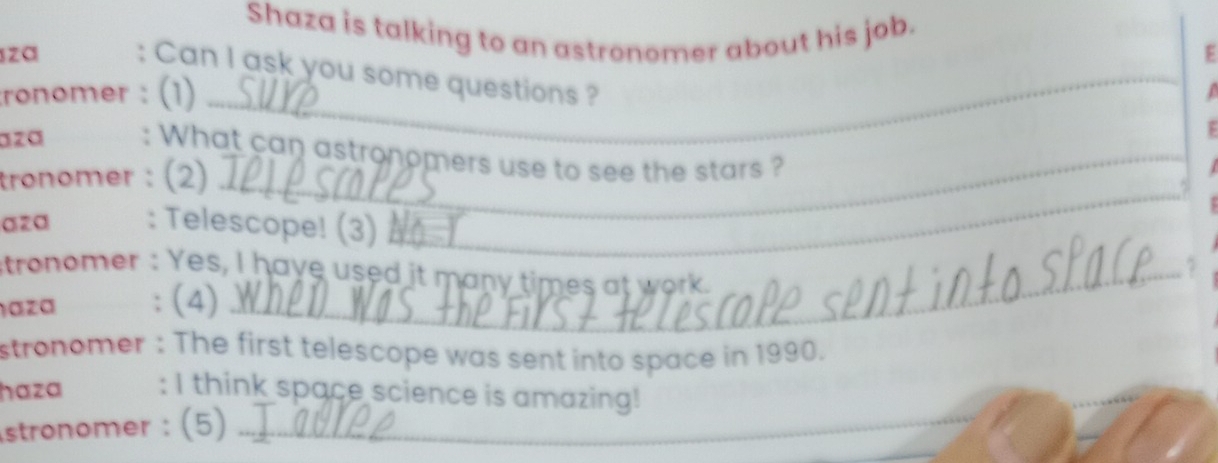 Shaza is talking to an astronomer about his job.
aza : Can I ask you some questions ?
ronomer : (1) sure
aza : What can astronomers use to see the stars ?
tronomer : (2) Telescopes
aza : Telescope! (3) ?
stronomer : Yes, I have used it many times at work.
haza : (4) when was the First telescope sent into space ?
stronomer : The first telescope was sent into space in 1990.
haza : I think space science is amazing!
stronomer : (5) I agree